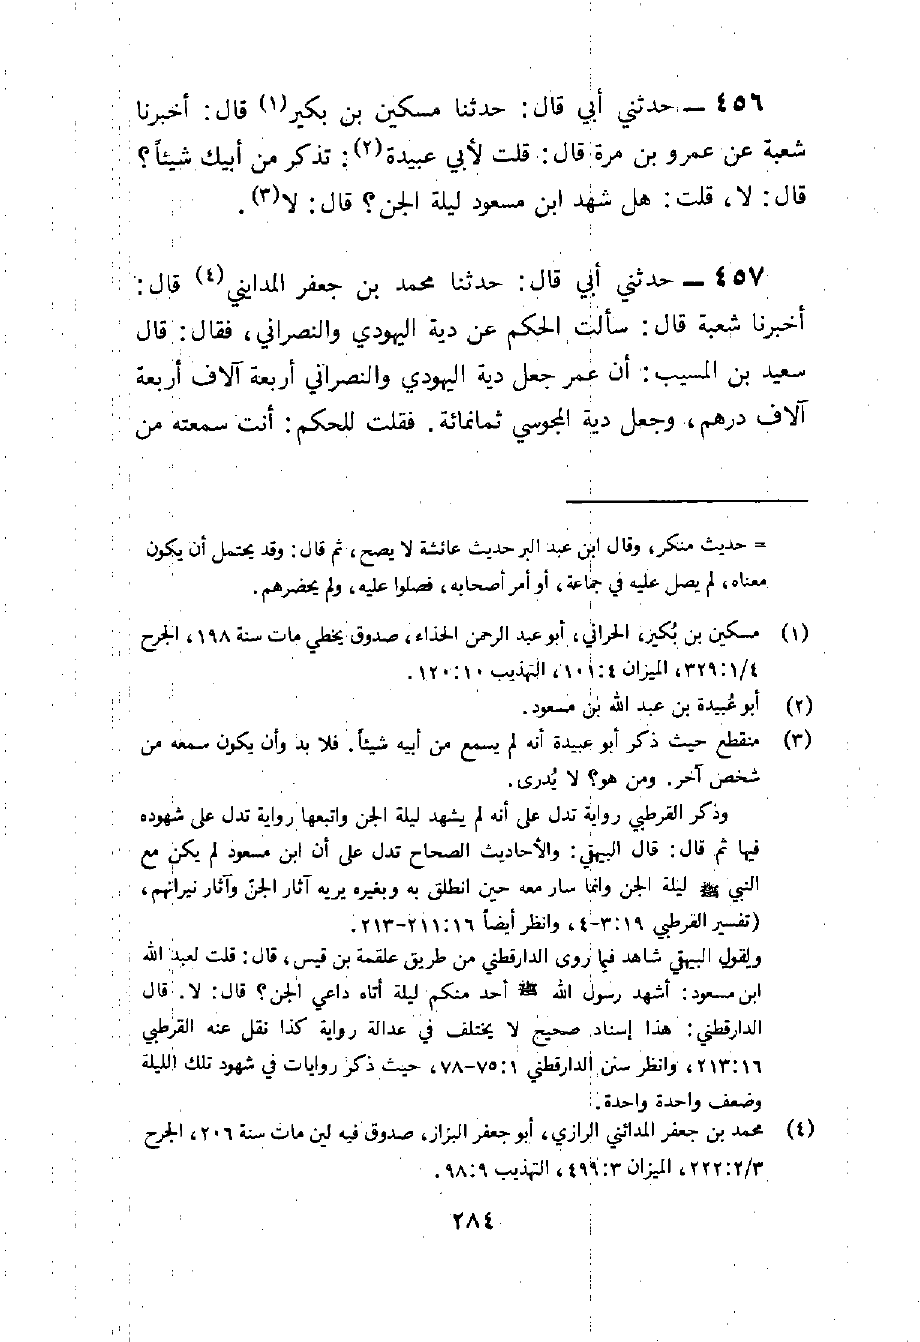 ٤٥٦ ــ حدثني أبي قال: حدثنا مسكين بن بكير(١) قال: أخبرنا
شعبة عن عمرو بن مرة قال: قلت لأبي عبيدة(٢): تذكر من أبيك شيئاً؟
قال: لا، قلت: هل شهد ابن مسعود ليلة الجن؟ قال: لا(٣).
٤٥٧ ــ حدثني أبي قال: حدثنا محمد بن جعفر المدايني(٤) قال:
أخبرنا شعبة قال: سألت الحكم عن دية اليهودي والنصراني، فقال: قال
سعيد بن المسيب: أن عمر جعل دية اليهودي والنصراني أربعة آلاف أربعة
آلاف درهم، وجعل دية المجوسي ثمانمائة. فقلت للحكم: أنت سمعته من
= حديث منكر، وقال ابن عبد البر حديث عائشة لا يصح، ثم قال: وقد يحتمل أن يكون
معناه، لم يصل عليه في جماعة، أو أمر أصحابه، فصلوا عليه، ولم يحضرهم.
(١) مسكين بن بُكير، الحراني، أبو عبد الرحمن الحذاء، صدوق يخطي مات سنة ١٩٨، الجرح
٣٢٩:١/٤، الميزان ١٠١:٤، التهذيب ١٢٠:١٠.
(٢) أبو عُبيدة بن عبد الله بن مسعود.
(٣) منقطع حيث ذكر أبو عبيدة أنه لم يسمع من أبيه شيئاً. فلا بد وأن يكون سمعه من
شخص آخر. ومن هو؟ لا يُدرى.
وذكر القرطبي رواية تدل على أنه لم يشهد ليلة الجن واتبعها رواية تدل على شهوده
فيها ثم قال: قال البيهقي: والأحاديث الصحاح تدل على أن ابن مسعود لم يكن مع
النبي ﷺ ليلة الجن وانما سار معه حين انطلق به وبغيره يريه آثار الجنّ وآثار نيرانهم،
(تفسير القرطبي ٣:١٩-٤، وانظر أيضاً ٢١١:١٦-٢١٣.
ولقول البيهقي شاهد فيما روى الدارقطني من طريق علقمة بن قيس، قال: قلت لعبد الله
ابن مسعود: أشهد رسول الله ﷺ أحد منكم ليلة أتاه داعي الجن؟ قال: لا. قال
الدارقطني: هذا إسناد صحيح لا يختلف في عدالة رواية كذا نقل عنه القرطبي
٢١٣:١٦، وانظر سنن الدارقطني ٧٥:١-٧٨، حيث ذكر روايات في شهود تلك الليلة
وضعف واحدة واحدة.
(٤) محمد بن جعفر المدائني الرازي، أبو جعفر البزاز، صدوق فيه لين مات سنة ٢٠٦، الجرح
٢٢٢:٢/٣، الميزان ٤٩٩:٣، التهذيب ٩٨:٩.
٢٨٤